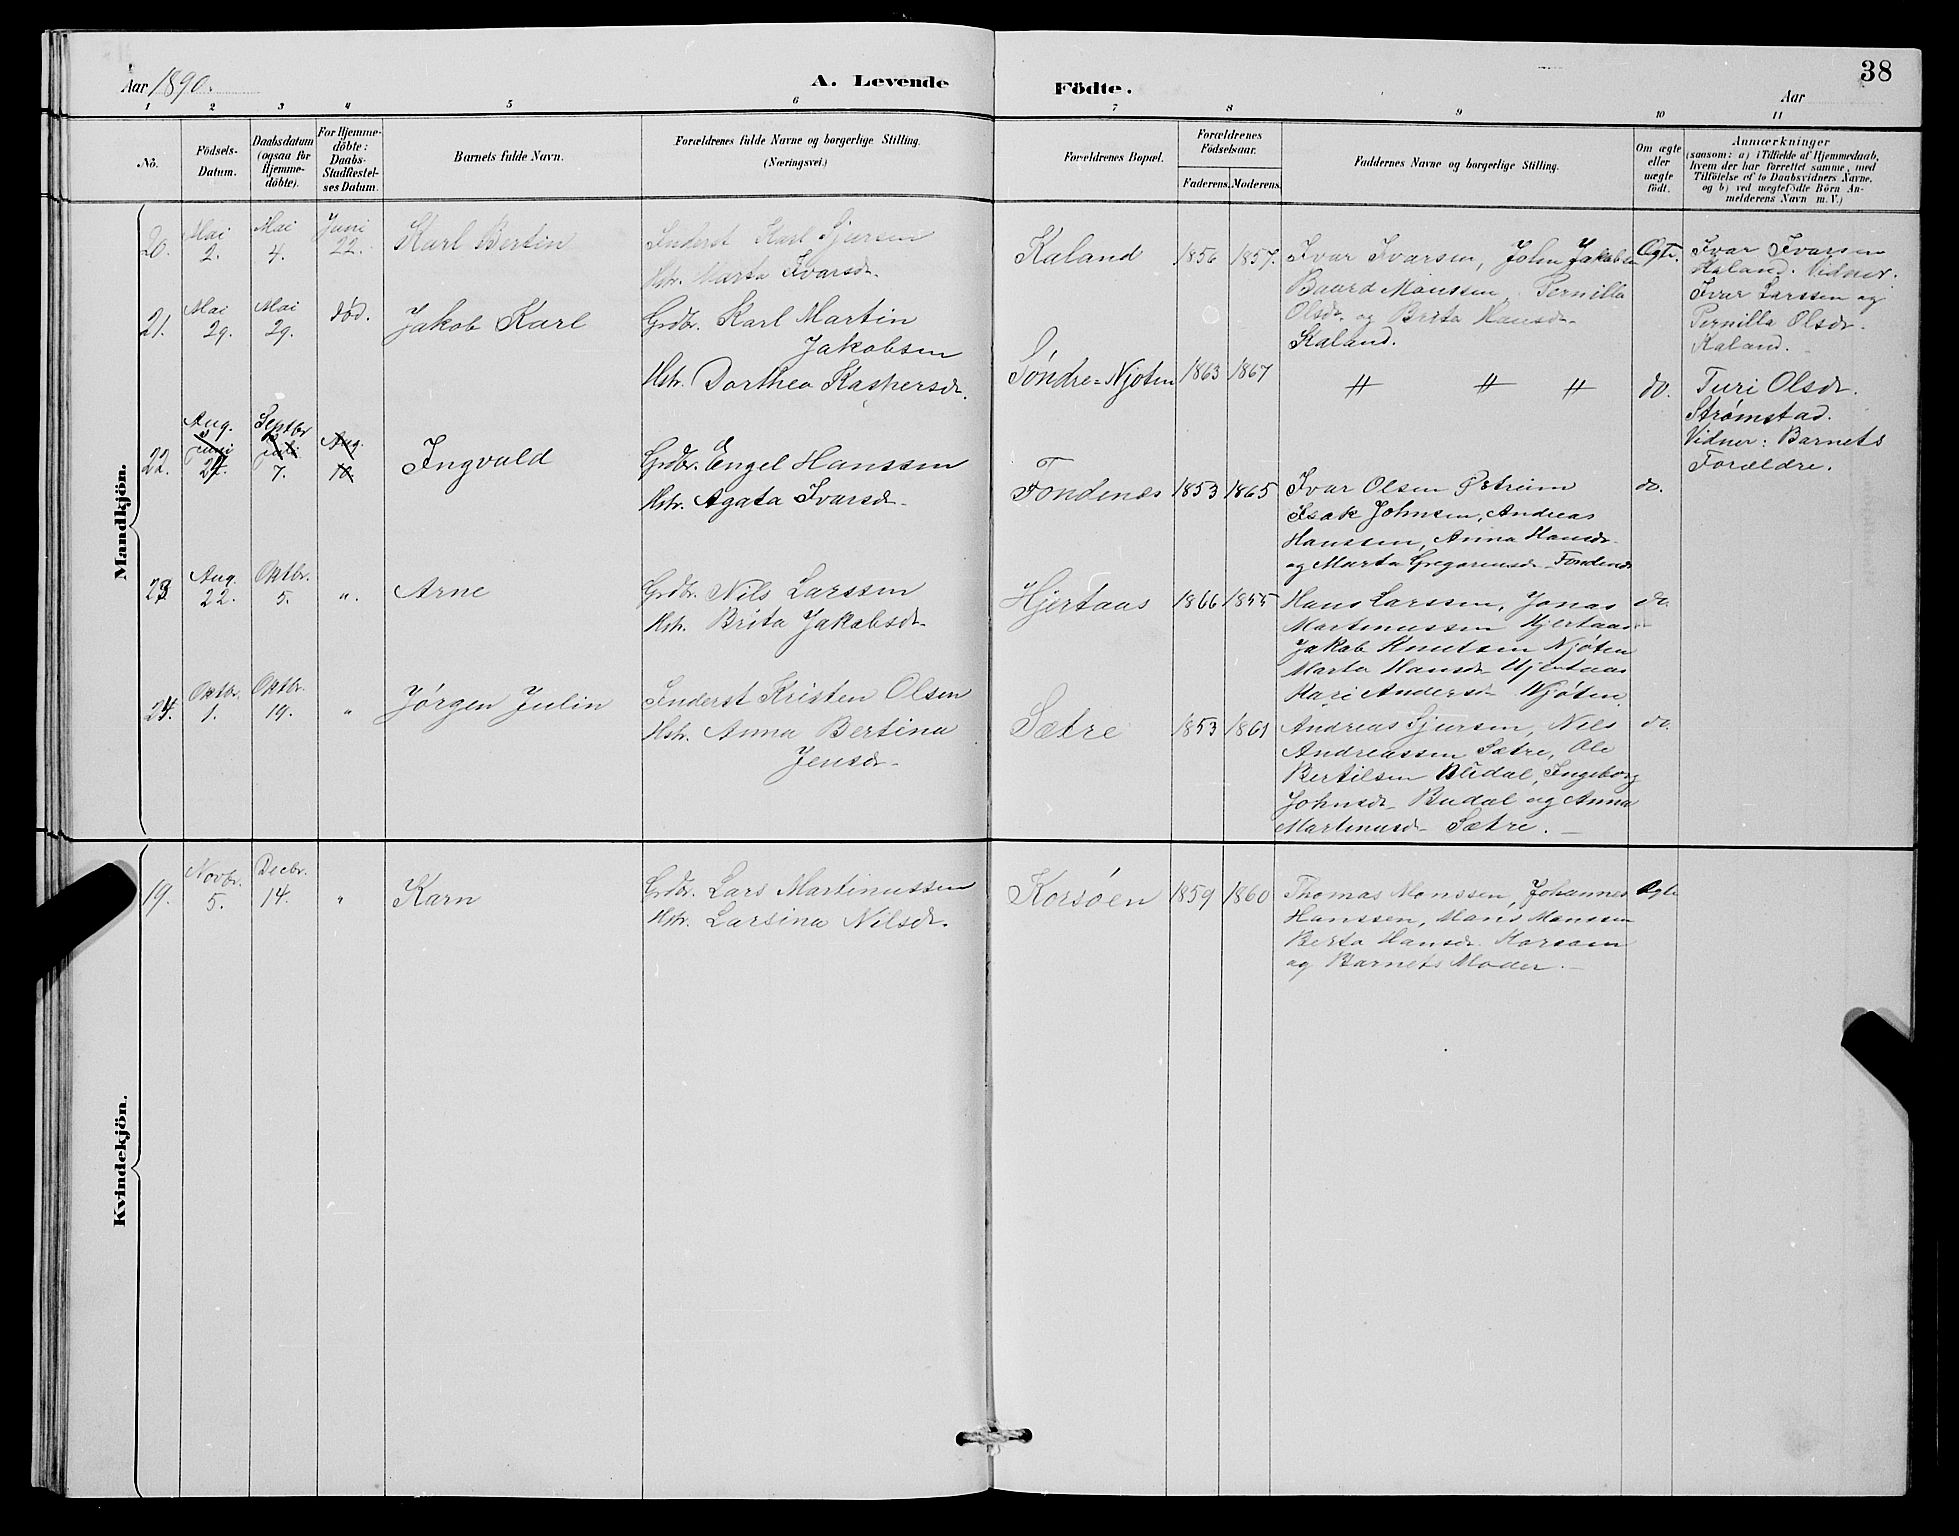 Aar 1890. A. Levende Födte. Aar 38
1 2 3 4 5 6 7 8 9 10 11
No. Födsels-Datum. Daabsdatum (ogsaa for Hjemme-döbte). For Hjemme-döbte: Daabs-Stadfæstel-ses Datum. Barnets fulde Navn. Forældrenes fulde Navne og borgerlige Stilling. (Næringsvei.) Forældrenes Bopæl. Forældrenes Födselsaar. Faderens. Moderens. Faddernes Navne og borgerlige Stilling. Om ægte eller uægte födt. Anmærkninger (saasom: a) i Tilfælde af Hjemmedaab, hvem der har forrettet samme, med Tilföielse af to Daabsvidners Navne, og b) ved uægtefödte Börn An-melderens Navn m. V.)
Mandkjön.
20. Mai 2. Mai 4. Juni 22. Karl Bertin
Inderst Karl Sjursen
Hstr. Marta Ivarsdr.
Kaland 1856 1857.
Ivar Ivarsen, John Jakobsen
Baard Monssen, Pernilla
Olsdr. og Brita Hansdr.
Kaland.
Ægte.
Ivar Ivarsen
Kaland. Vidner:
Ivar Larssen og
Pernilla Olsdr.
Kaland.
21. Mai 29. Mai 29. død. Jakob Karl
Grdbr. Karl Martin
Jakobsen
Hstr. Dorthea Kaspersdr.
Søndre=Njøten 1863 1867
" " " do.
Turi Olsdr.
Strømstad.
Vidner: Barnets
Forældre.
22. Aug. 3 Juni 27. Septbr. Juli 7. Aug. 10 Ingvald
Grdbr. Engel Hanssen
Hstr. Agata Ivarsdr.
Fondenes 1853 1865
Ivar Olsen
Isak Johnsen, Andreas
Hanssen, Anna Hansdr.
og Marta Gregoriusdr. Fondenes
do.
23. Aug. 22. Oktbr. 5. ". Arne
Grdbr. Nils Larssen
Hstr. Brita Jakobsdr.
Hjertaas 1866 1855
Hans Larssen, Jonas
Martinussen Hjertaas
Jakob Knutsen Njøten
Marta Hansdr. Hjertaas
Kari Andersdr. Njøten.
do.
24. Oktbr. 1. Oktbr. 19. " Jørgen Julin
Inderst Kristen Olsen
Hstr. Anna Bertina
Jensdr.
Sætre 1853 1861
Andreas Sjursen, Nils
Andreassen Sætre, Ole
Bertilsen Budal, Ingeborg
Johnsdr. Budal og Anna
Martinusdr. Sætre.
do.
Kvindekjön.
19. Novbr. 5. Decbr. 14. " Karn
Grdbr. Lars Martinussen
Hstr. Larsina Nilsdr.
Korsøen 1859 1860
Thomas Monssen, Johannes
Hanssen, Mons Monssen
Berta Hansdr. Korsøen
og Barnets Moder.
Ægte